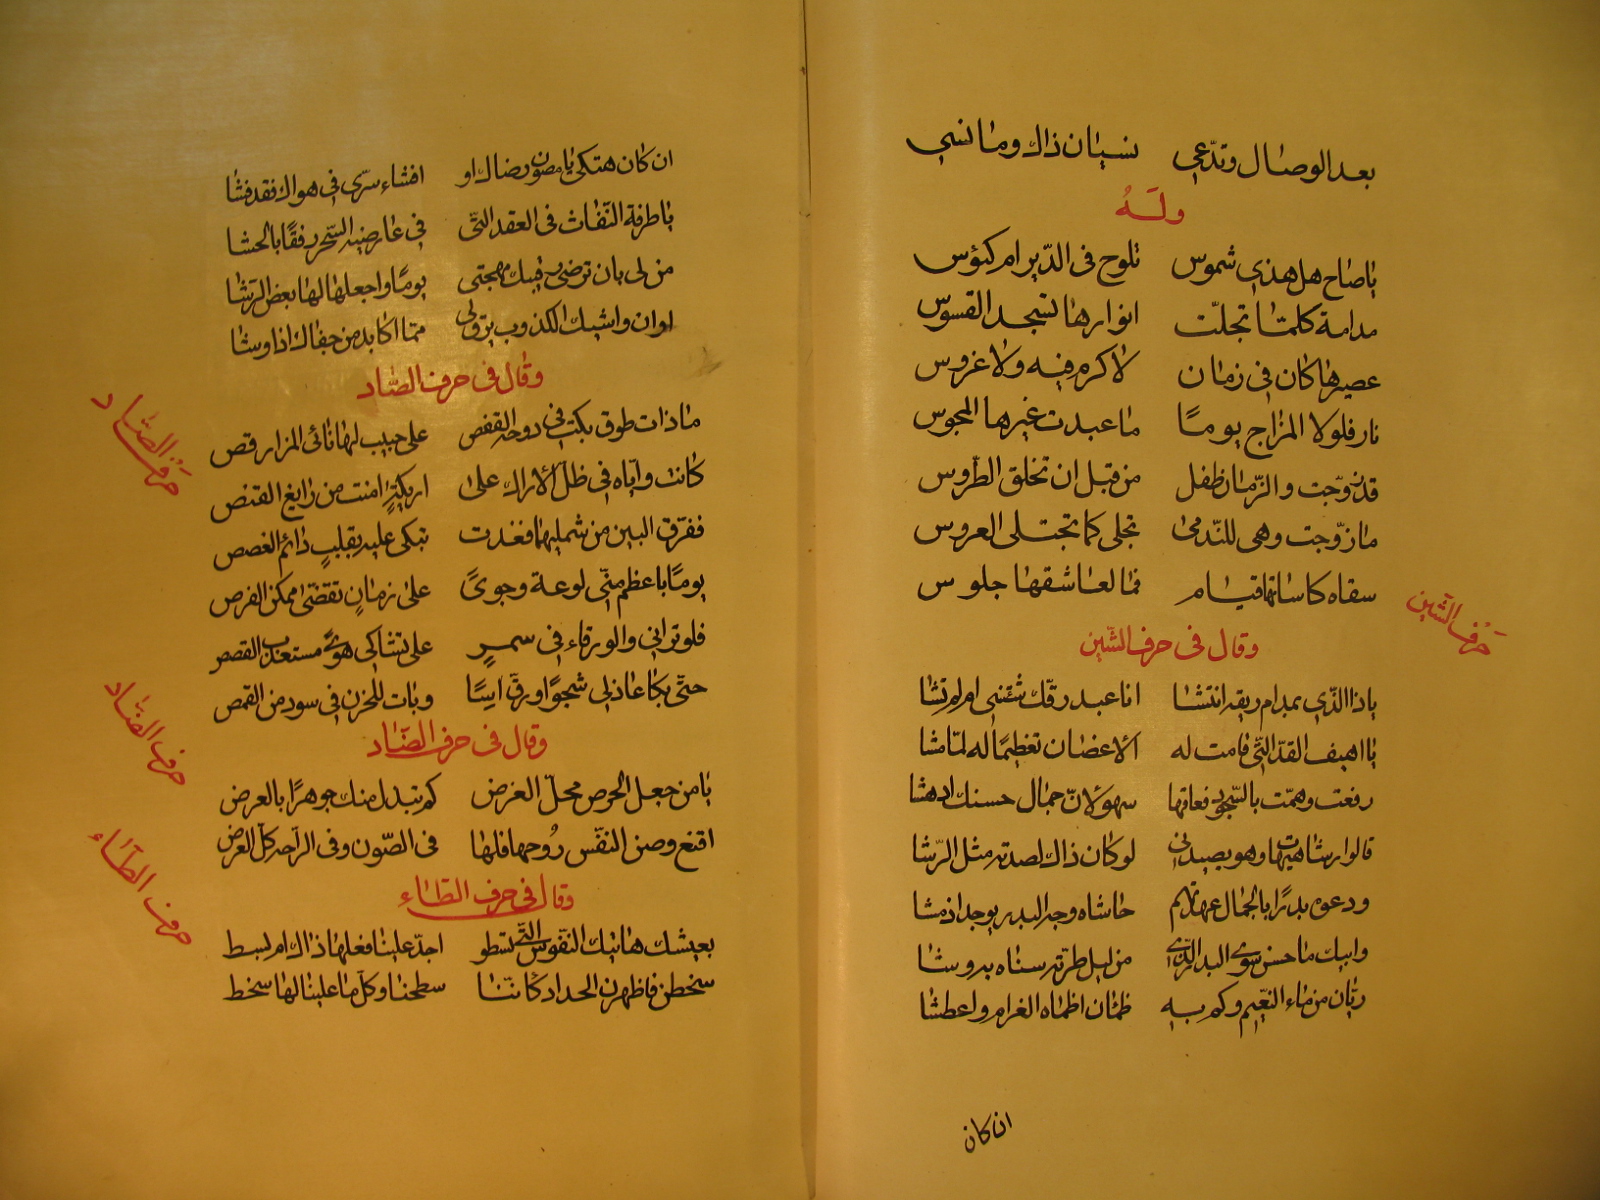 بعد الوصال وتدّعي نسيان ذاك وما نسي
وله
ياصاح هل هذي شموس تلوح في الدّير ام كئوس
مدامة كلمّا تجلّت انوارها تسجد القسوس
عصيرها كان في زمان لا كرم فيه ولا غروس
نار فلولا المزاج يومًا ما عبدت غيرها المجوس
قد زوّجت والزّمان طفل من قبل ان تخلق الطّروس
ما زوّجت وهي للنّدمى تجلى كما تجتلى العروس
سقاه كاساتها قيام فما لعاشقها جلوس
حرف الشين
وقال في حرف الشّين
ياذا الّذي بمدام ريقه انتشا انا عبد رقّك شئتني ام لم تشا
يا اهيف القدّ الّتي قامت له الاغصان تعظيمًا له لمّا مشا
رفعت وهمّت بالسّجود فعاقها سهو لانّ جمال حسنك ادهشا
قالوا رشا هيهات وهو يصيدني لو كان ذاك لصدته مثل الرّشا
ودعوه بدرًا بالجمال حاشاه وجه البدر يوجد اذ مشا
وابيك ما حسن سوى البدر الّذي من ليل طرته سناه بدو وشا
ريّان من ماء النّعيم وكم به ظمئان اظماه الغرام واعطشا
ان كان
ان كان هتكى يا مصون رضاك او افشاء سرّى في هواك فقد فشا
ياطرفة النّفاث في العقد الّتي في عارضيه السّحر رفقًا بالحشا
من لي بان ترضى وقيك مهجتى يومًا واجعلها لها بعض الرّشا
او ان واشيك الكذوب يرقّ لي ممّا اكابد من جفاك اذا وشا
وقال في حرف الصّاد
حرف الصّاد
ما ذات طوق بكت في دوحة القفص على حبيب لها نائى المزار قص
كانت وايّاه في ظلّ الاراك على اريكةٍ امنت من زايغ القنص
ففرّق البين من شمليهما فغدت تبكى عليه بقلبٍ دائم الغصص
يومًا باعظم منّي لوعة وجوىً على زمانٍ تقضّى ممكن الفرص
فلو تراني والورقاء في سمرٍ على تشاكي هوىً مستعذب القصص
حتّى بكا عاذلي شجوًا ورقّ اسًا وبات للحزن في سود من القمص
وقال في حرف الضّاد
حرف الضّاد
يا من جعل الحرص محلّ الغرض كم تبدل منك جوهرًا بالعرض
اقنع وصن النفّس رُوحها فلها في الصّون وفي الراحه كلّ الغرض
وقال في حرف الطّاء
حرف الطّاء
بعيشك هاتيك النّفوس الّتي تسطو اجدّ علينا فعلها ذاك ام بسط
سخطن فاظهرن الحداد كاننّا سطحنا وكلّ ما علينا لها سخط